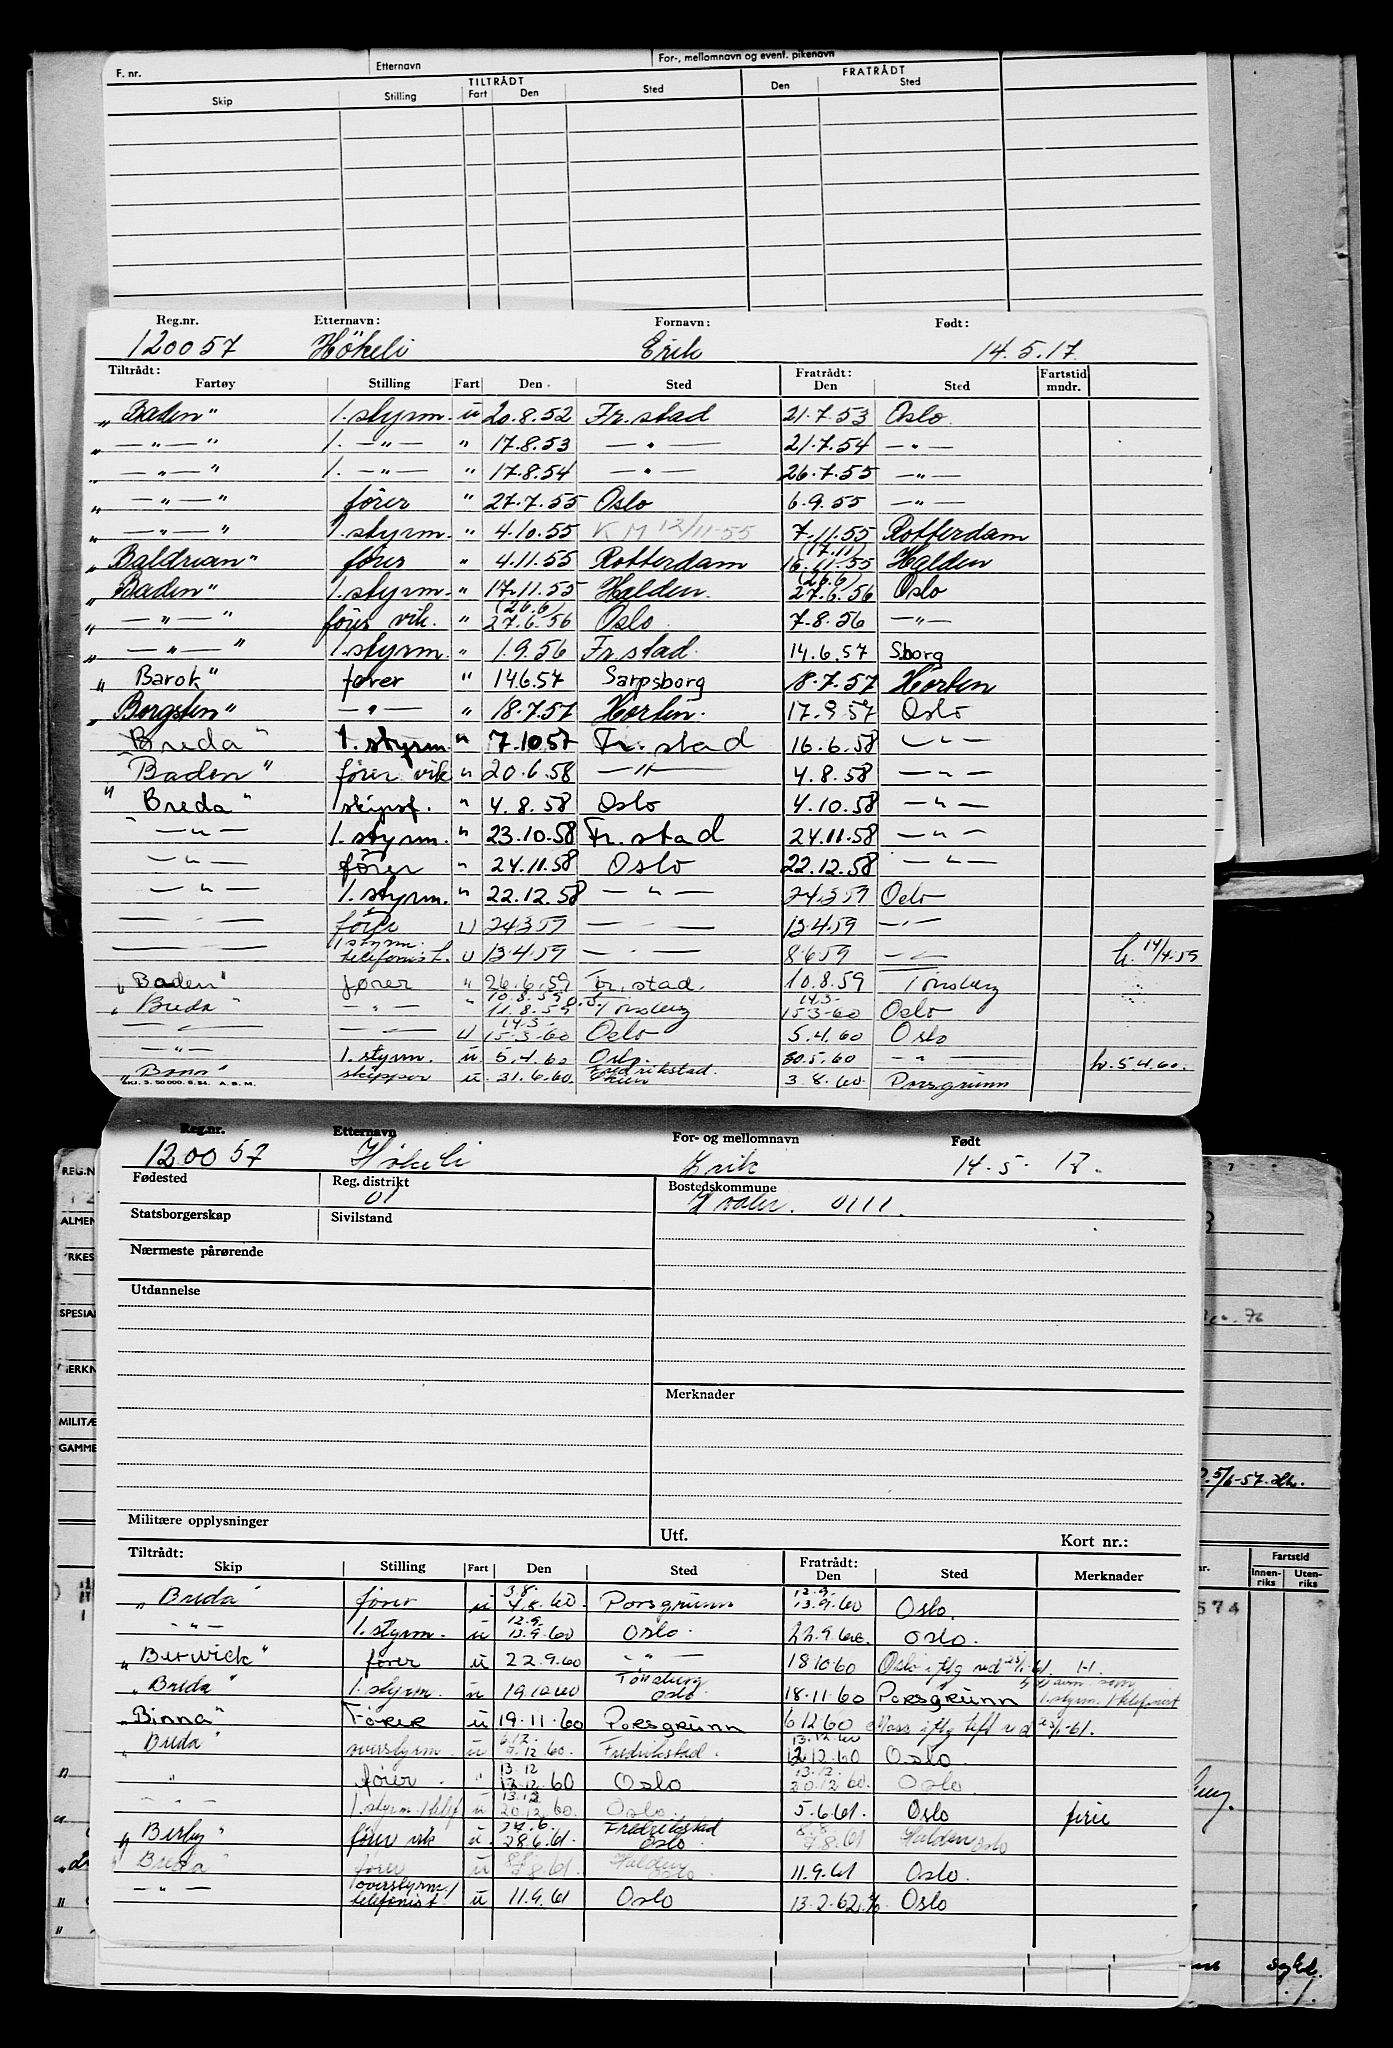 F. nr. Etternavn For-, mellomnavn og event. pikenavn
TILTRÅDT FRATRÅDT
Skip Stilling Fart Den Sted Den Sted
Reg.nr. Etternavn: Fornavn: Født:
120057 Hökeli Erik 14.5.17.
Tiltrådt: Fratrådt: Fartstid
Fartøy Stilling Fart Den Sted Den Sted mndr.
„Baden" 1. styrm. u 20.8.52 Fr.stad 21.7.53 Oslo
„ — „ — " 1. — „ — " 17.8.53 — „ — 21.7.54 — „ —
„ — „ — " 1. — „ — " 17.8.54 — „ — 26.7.55 — „ —
„ — „ — " fører " 27.7.55 Oslo 6.9.55 — „ —
„ — „ — " 1. styrm. " 4.10.55 KM 12/11-55 7.11.55 Rotterdam
„Baldrian" fører " 4.11.55 Rotterdam (17.11) 16.11.55 Halden
„Baden" 1. styrm. " 17.11.55 Halden. (26.6) 27.6.56 Oslo
„ — „ — " fører vik. " (26.6) 27.6.56 Oslo. 7.8.56 — „ —
„ — „ — " 1. styrm. " 1.9.56 Fr.stad. 14.6.57 Sborg
„ Barok" fører " 14.6.57 Sarpsborg 18.7.57 Horten
„Borgsten" — „ — " 18.7.57 Horten. 17.9.57 Oslo
„Breda" 1. styrm. " 7.10.57 Fr.stad 16.6.58 — „ —
„Baden" fører vik " 20.6.58 — „ — 4.8.58 — „ —
„ Breda" 1 " 4.8.58 Oslo 4.10.58 — „ —
— „ — 1. styrm. " 23.10.58 Fr.stad 24.11.58 — „ —
— „ — fører " 24.11.58 Oslo 22.12.58 — „ —
— „ — 1. styrm. " 22.12.58 — „ — 24.3.59 Oslo
fører U 24.3.59 — . — 13.4.59 — „ —
1 styrm. telefonist. U 13.4.59 — . — 8.6.59 — „ — h. 14/4.59
„Baden" fører " 26.6.59 Fr.stad. 10.8.59 Tönsberg
„Breda" — „ — " 10.8.59 11.8.59 Tönsberg 14.3- 15-3-60 Oslo
— „ — — „ — U 14.3- 15-3-60 Oslo 5.4.60 Oslo
— „ — 1. styrm. u 5.4.60 Oslo. 30.5.60 — „ — h. 5.4.60.
„Bona" skipper u 31.6.60 Fredrikstad. Skien 3.8.60. Porsgrunn
SKJ. 3. 50 000. 8. 54. A. B. M.
Reg.nr. Etternavn For- og mellomnavn Født
120057 Høkeli Erik 14.5.17.
Fødested Reg. distrikt Bostedskommune
01 Hvaler. 0111.
Statsborgerskap Sivilstand
Nærmeste pårørende
Utdannelse
Merknader
Militære opplysninger Utf. Kort nr.:
Tiltrådt: Fratrådt:
Skip Stilling Fart Den Sted Den Sted Merknader
„Breda" fører u 3.8. 4.8.60. Porsgrunn 12.9- 13.9.60 Oslo.
— „ — 1. styrm. u 12.9. 13.9.60 Oslo. 22.9.60. Oslo.
„Berwick" fører u 22.9.60 — „ — 18.10.60 Oslo iflg
„Breda" 1. styrm. u 19.10.60 Tönsberg Oslo. 18.11.60 Porsgrunn 1. styrm. 1 telefonist
„Binna" Fører u 19.11.60 Porsgrunn 6.12.60 Moss iflg
„Breda" overstyrm. u 6.12. 7.12.60. Fredrikstad. 13.12.60 12.12.60 Oslo.
" fører. " 13.12 13.12.60 Oslo 13.12. 20.12.60. Oslo
— „ — 1. styrm. /telf u 13.12 20.12.60. Oslo. 5.6.61. Oslo ferie
„Berby" fører vik u. 27.6. 28.6.61. Fredrikstad Oslo. 8.8. 9.8.61 Halden Oslo
„Breda" fører u 8.8. 9.8.61. Halden Oslo 11.9.61 Oslo.
— „ — overstyrm/ telefonist. u 11.9.61 Oslo 13.2.62. Oslo
REG.N
ALMEN
YRKES
SPESIA
MERKN
MILITÆ
GAMME
5/6-57.
Fartstid
Innen-riks Uten-riks
574